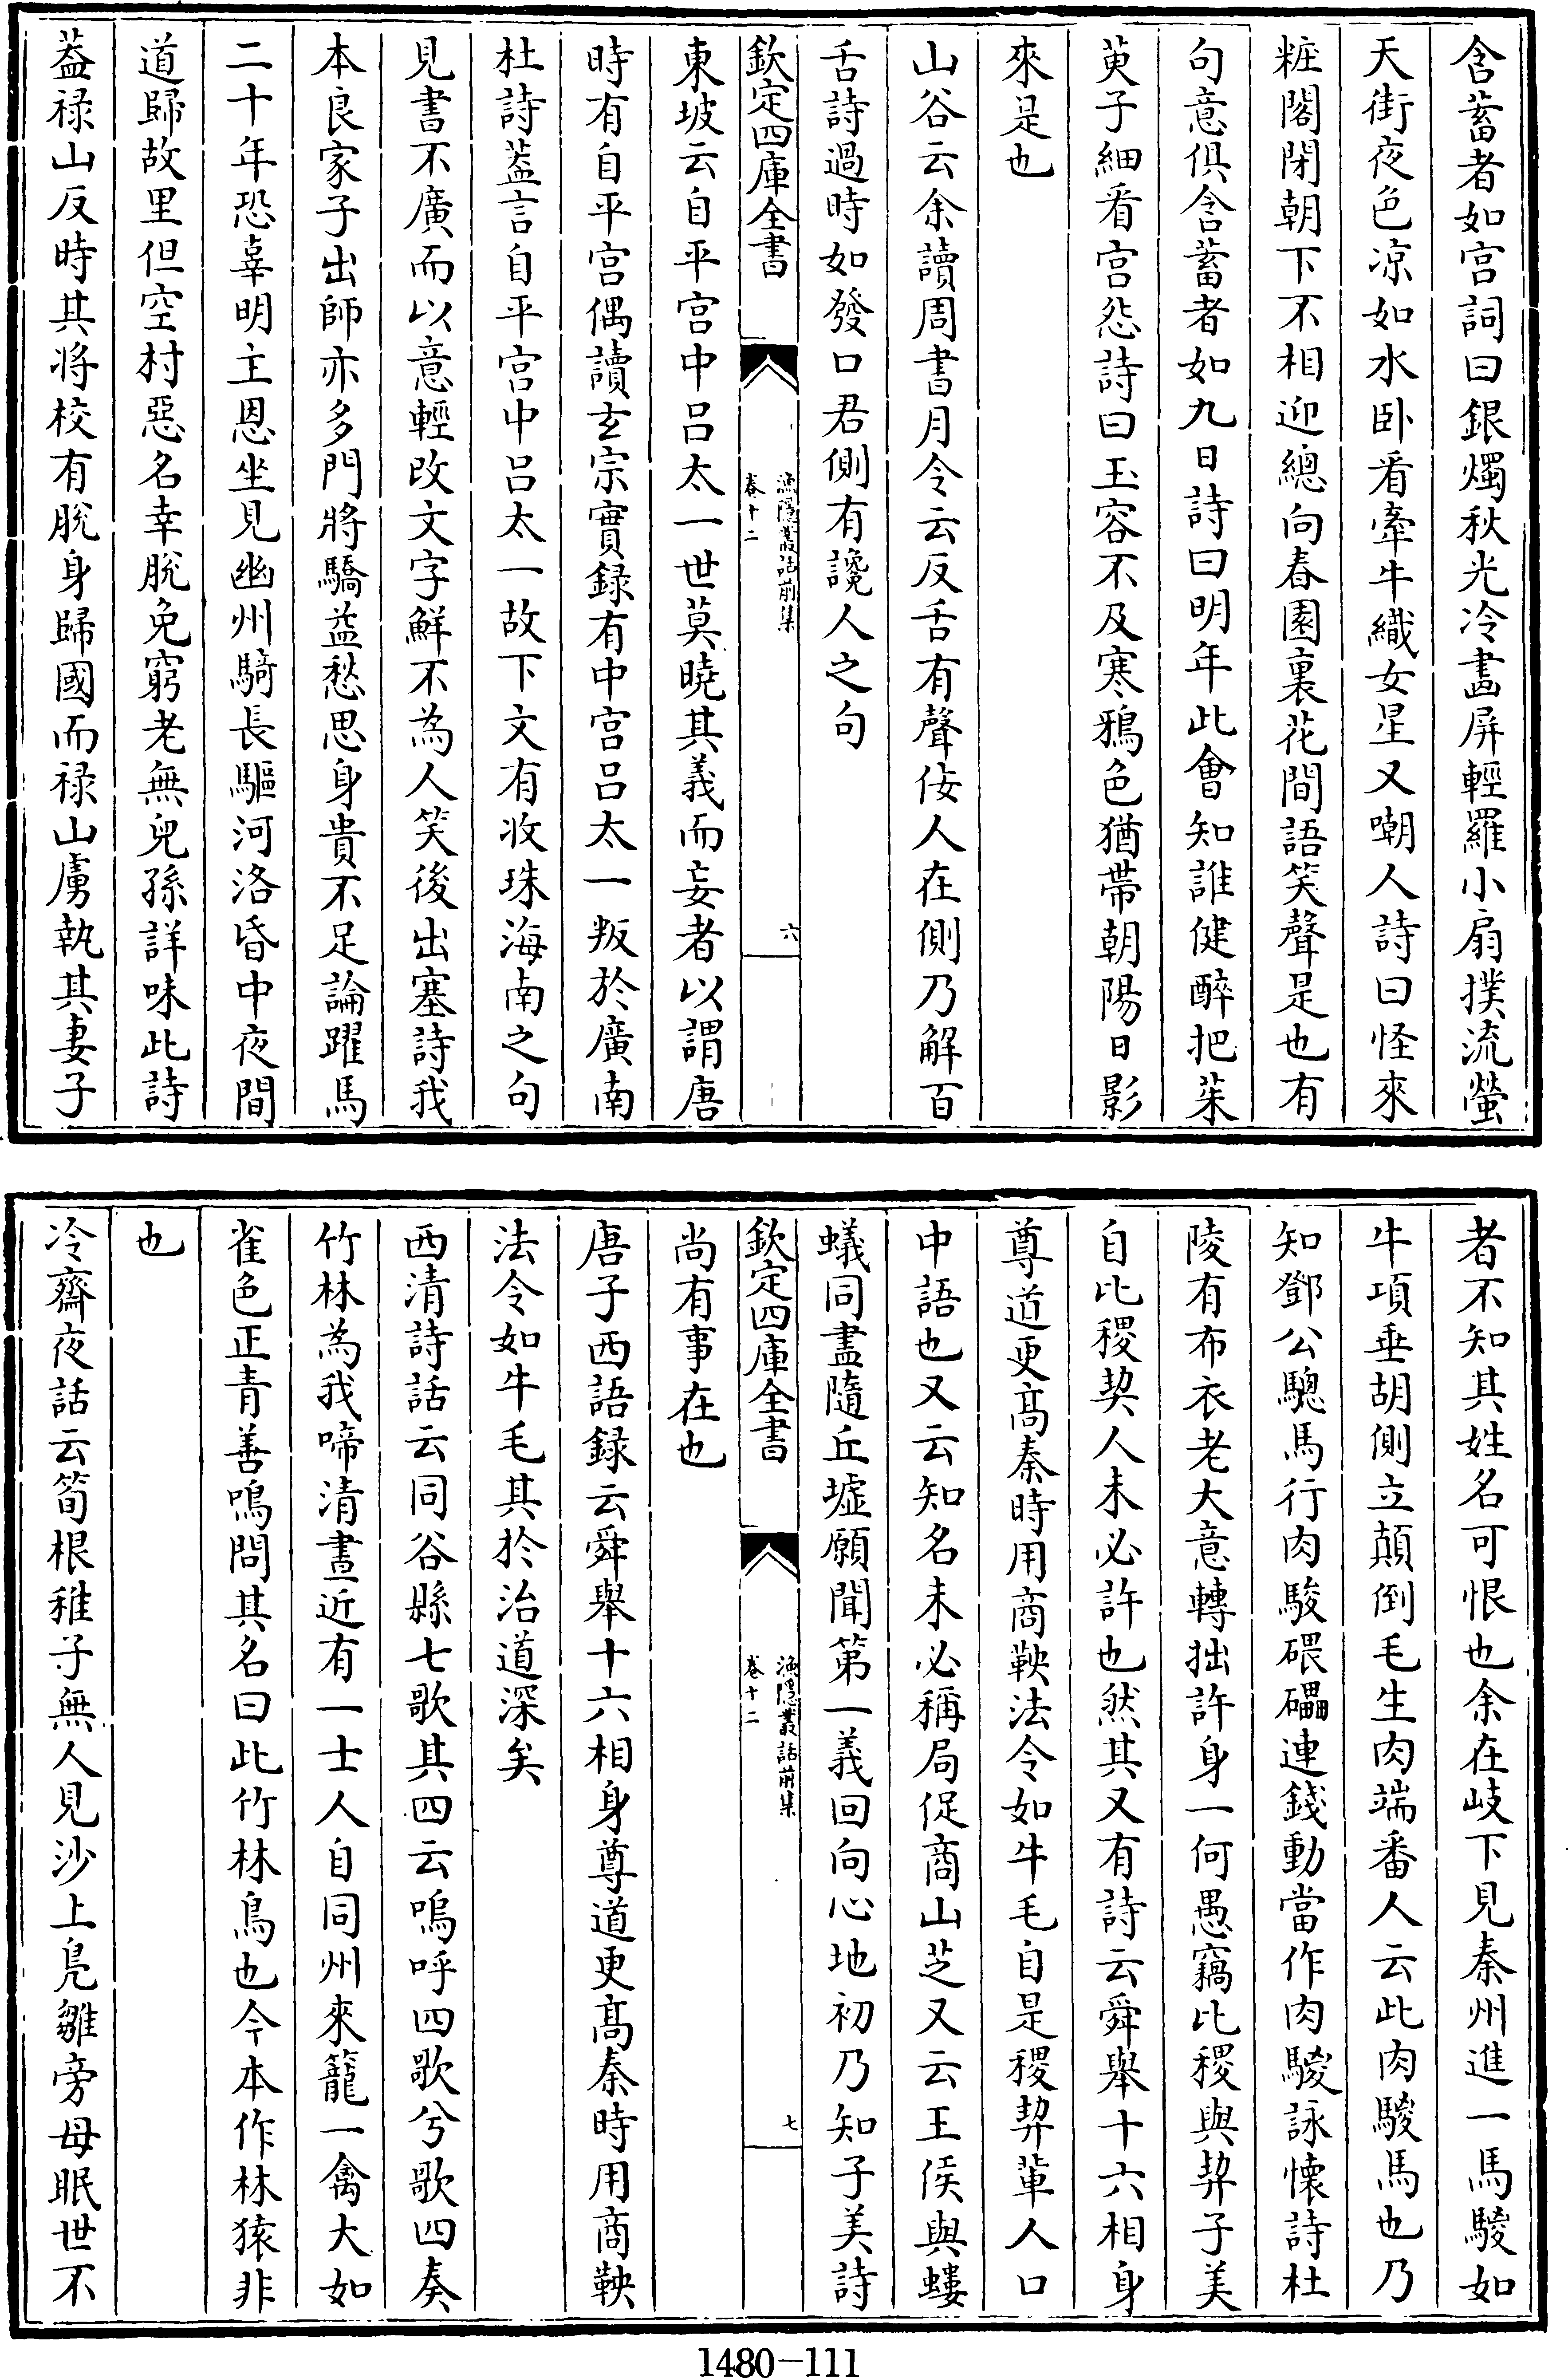 含蓄者如宫詞曰銀燭秋光冷畫屏輕羅小扇撲流螢
天街夜色凉如水卧看牽牛織女星又嘲人詩曰怪來
粧閣閉朝下不相迎總向春園裏花間語笑聲是也有
句意俱含蓄者如九日詩曰明年此會知誰健醉把茱
萸子細看宫怨詩曰玉容不及寒鴉色猶帶朝陽日影
來是也
山谷云余讀周書月令云反舌有聲佞人在側乃解百
舌詩過時如發口君側有讒人之句
欽定四庫全書
漁隱叢話前集
卷十二
六
東坡云自平宫中吕太一世莫曉其義而妄者以謂唐
時有自平宫偶讀玄宗實録有中宫吕太一叛於廣南
杜詩葢言自平宫中吕太一故下文有收珠海南之句
見書不廣而以意輕改文字鮮不為人笑後出塞詩我
本良家子出師亦多門將驕益愁思身貴不足論躍馬
二十年恐辜明主恩坐見幽州騎長驅河洛昏中夜間
道歸故里但空村惡名幸脱免窮老無兒孫詳味此詩
葢禄山反時其将校有脱身歸國而禄山虜執其妻子
者不知其姓名可恨也余在岐下見秦州進一馬騣如
牛項垂胡側立顛倒毛生肉端番人云此肉騣馬也乃
知鄧公驄馬行肉騣碨礧連錢動當作肉騣詠懷詩杜
陵有布衣老大意轉拙許身一何愚竊比稷與契子美
自比稷契人未必許也然其又有詩云舜舉十六相身
尊道更髙秦時用商鞅法令如牛毛自是稷契輩人口
中語也又云知名未必稱局促商山芝又云王侯與螻
蟻同盡隨丘墟願聞第一義回向心地初乃知子美詩
欽定四庫全書
漁隱叢話前集
卷十二
七
尚有事在也
唐子西語録云舜舉十六相身尊道更髙秦時用商鞅
法令如牛毛其於治道深矣
西清詩話云同谷縣七歌其四云嗚呼四歌兮歌四奏
竹林為我啼清晝近有一士人自同州來籠一禽大如
雀色正青善鳴問其名曰此竹林鳥也今本作林猿非
也
冷齋夜話云筍根稚子無人見沙上鳬雛旁母眠世不
1480-111